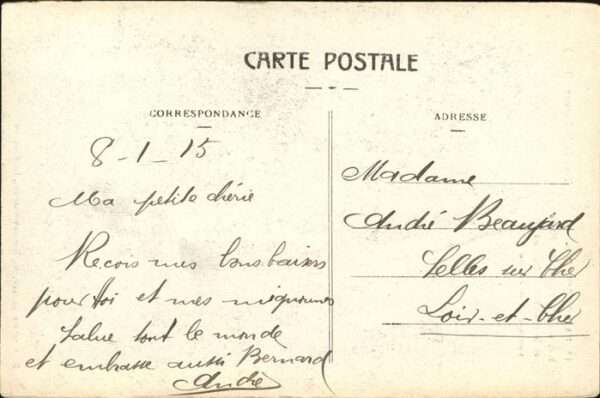 CARTE POSTALE
CORRESPONDANCE
ADRESSE
8-1-15
Ma petite chérie
Recois mes bons baisers
pour toi et mes mignonnes
Salue tout le monde
et embrasse aussi Bernard
André
Madame
André Beaujard
Selles sur Cher
Loir-et-Cher